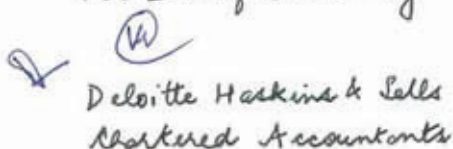 Deloitte Haskins & Sells
Chartered Accountants